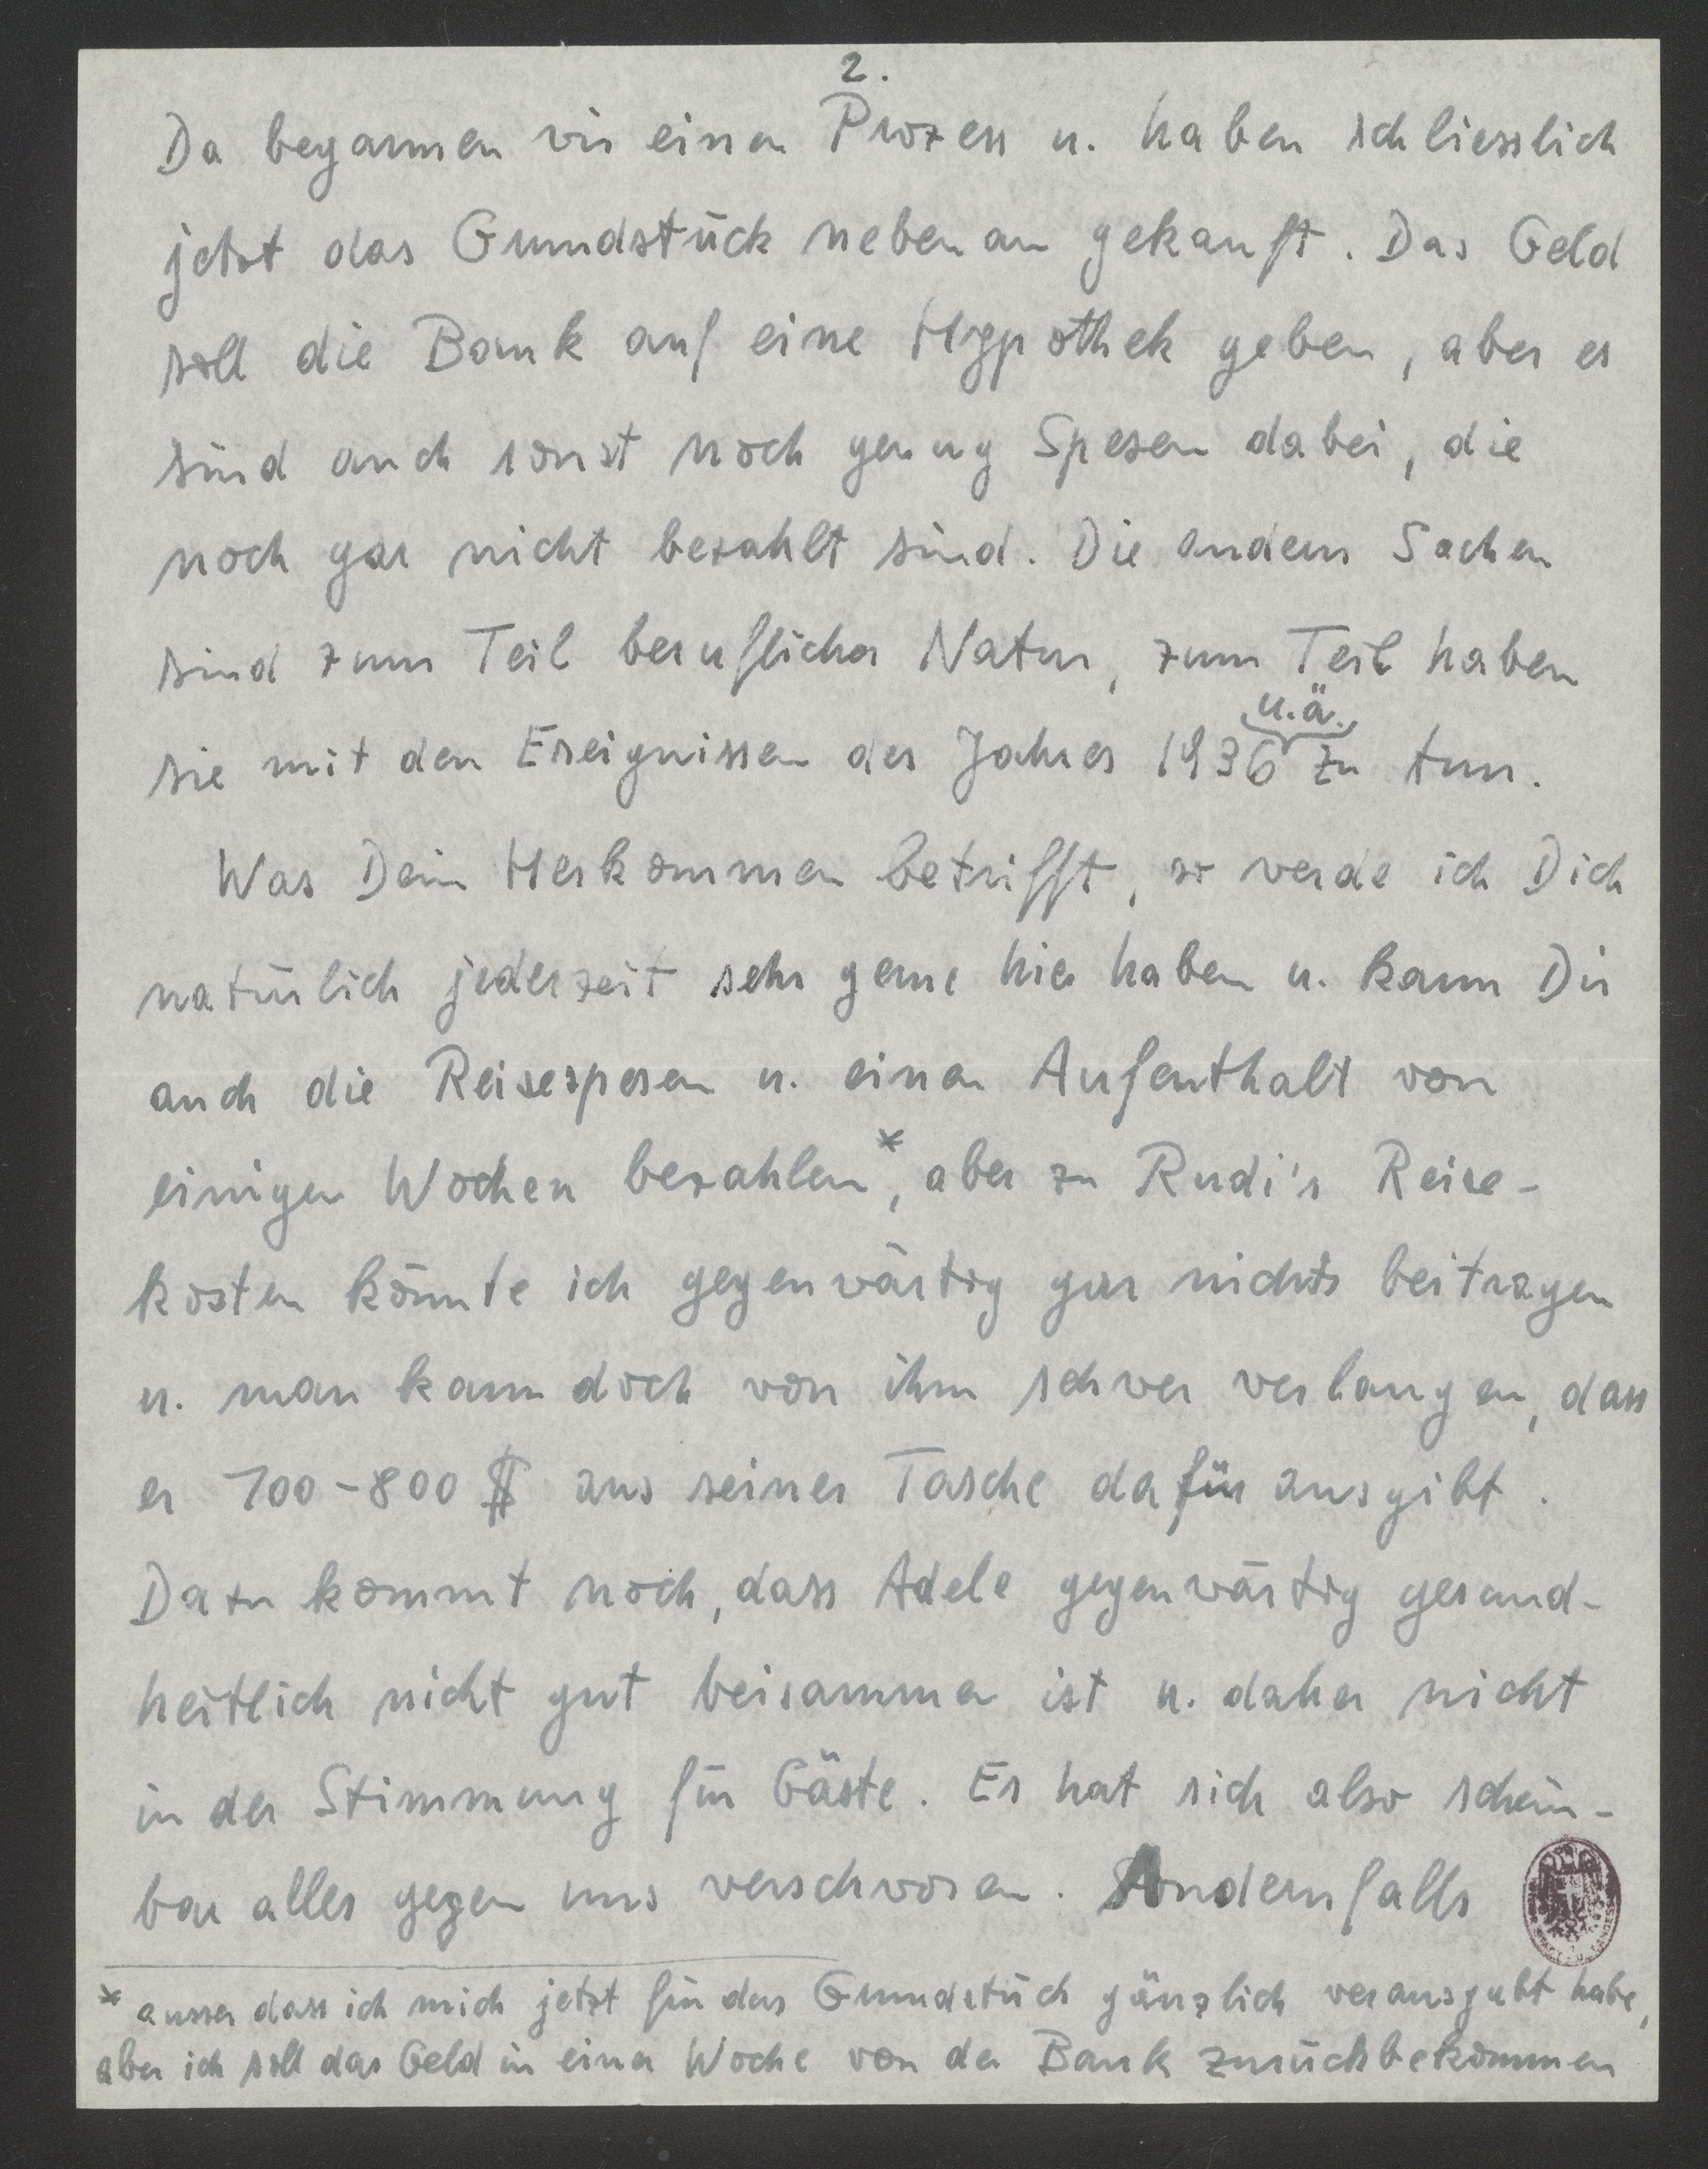 2.
Da begannen wir einen Prozess u. haben schliesslich
jetzt das Grundstück nebenan gekauft. Das Geld
soll die Bank auf eine Hypothek geben, aber es
sind auch sonst noch genug Spesen dabei, die
noch gar nicht bezahlt sind. Die andern Sachen
sind zum Teil beruflicher Natur, zum Teil haben
u.ä.
sie mit den Ereignissen des Jahres 1936 zu tun.
Was Dein Herkommen betrifft, so werde ich Dich
natürlich jederzeit sehr gerne hier haben u. kann Dir
auch die Reisespesen u. einen Aufenthalt von
einigen Wochen bezahlen*, aber zu Rudi's Reise-
kosten könnte ich gegenwärtig gar nichts beitragen
u. man kann doch von ihm schwer verlangen, dass
er 700-800 $ aus seiner Tasche dafür ausgibt.
Dazu kommt noch, dass Adele gegenwärtig gesund-
heitlich nicht gut beisammen ist u. daher nicht
in der Stimmung für Gäste. Es hat sich also schein-
bar alles gegen uns verschworen. Andernfalls
* ausser dass ich mich jetzt für das Grundstück gänzlich verausgabt habe,
aber ich soll das Geld in einer Woche von der Bank zurückbekommen